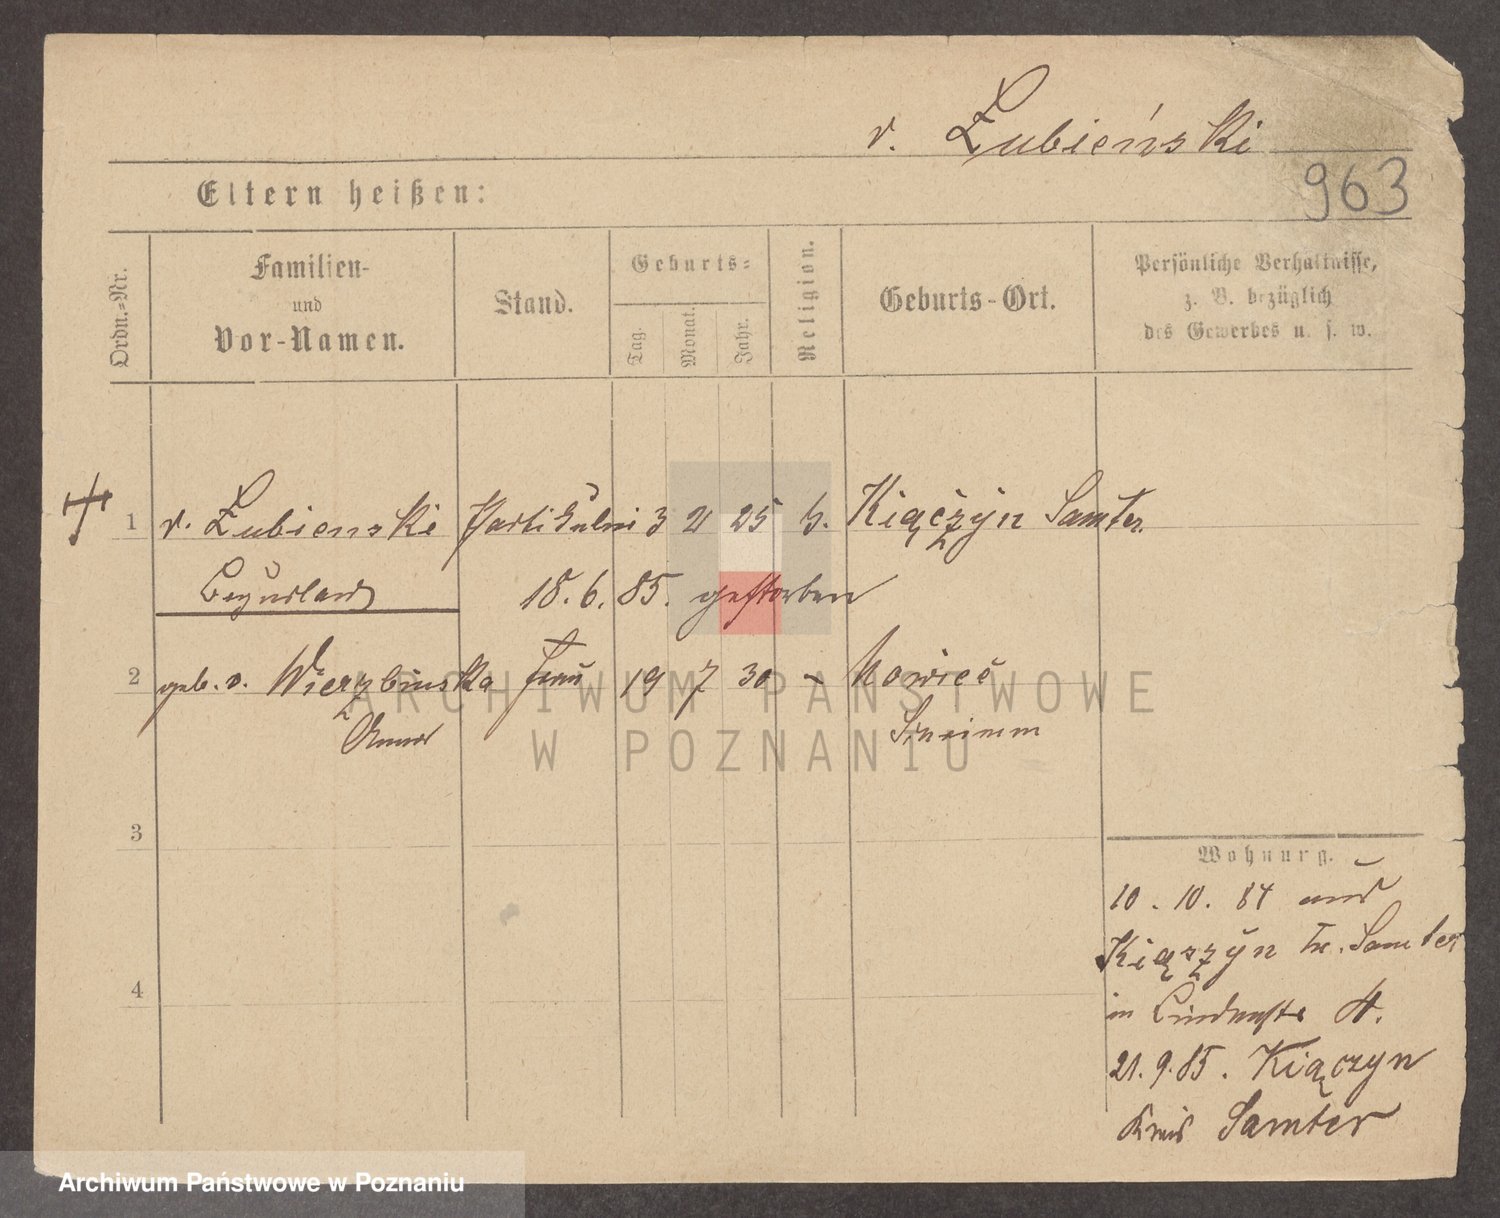 v. Łubieński
963
Eltern heißen:
Ordn.-Nr.
Familien-
und
Vor-Namen.
Stand.
Geburts-
Tag.
Monat.
Jahr.
Religion.
Geburts-Ort.
Persönliche Verhältnisse,
z. B. bezüglich
des Gewerbes u. s. w.
1 v. Łubienski 3 2 25 Kiączyn Samter
18. 6. 85. gestorben
2 geb. v. Wierzbinska Frau 19 7 30 -
Anna
ARCHIWUM PAŃSTWOWE
W POZNANIU
3
4
Wohnung.
10. 10. 84 aus
Kiączyn Kr. Samter
in Lindenstr 4.
21. 9. 85. Kiączyn
Kreis Samter
Archiwum Państwowe w Poznaniu